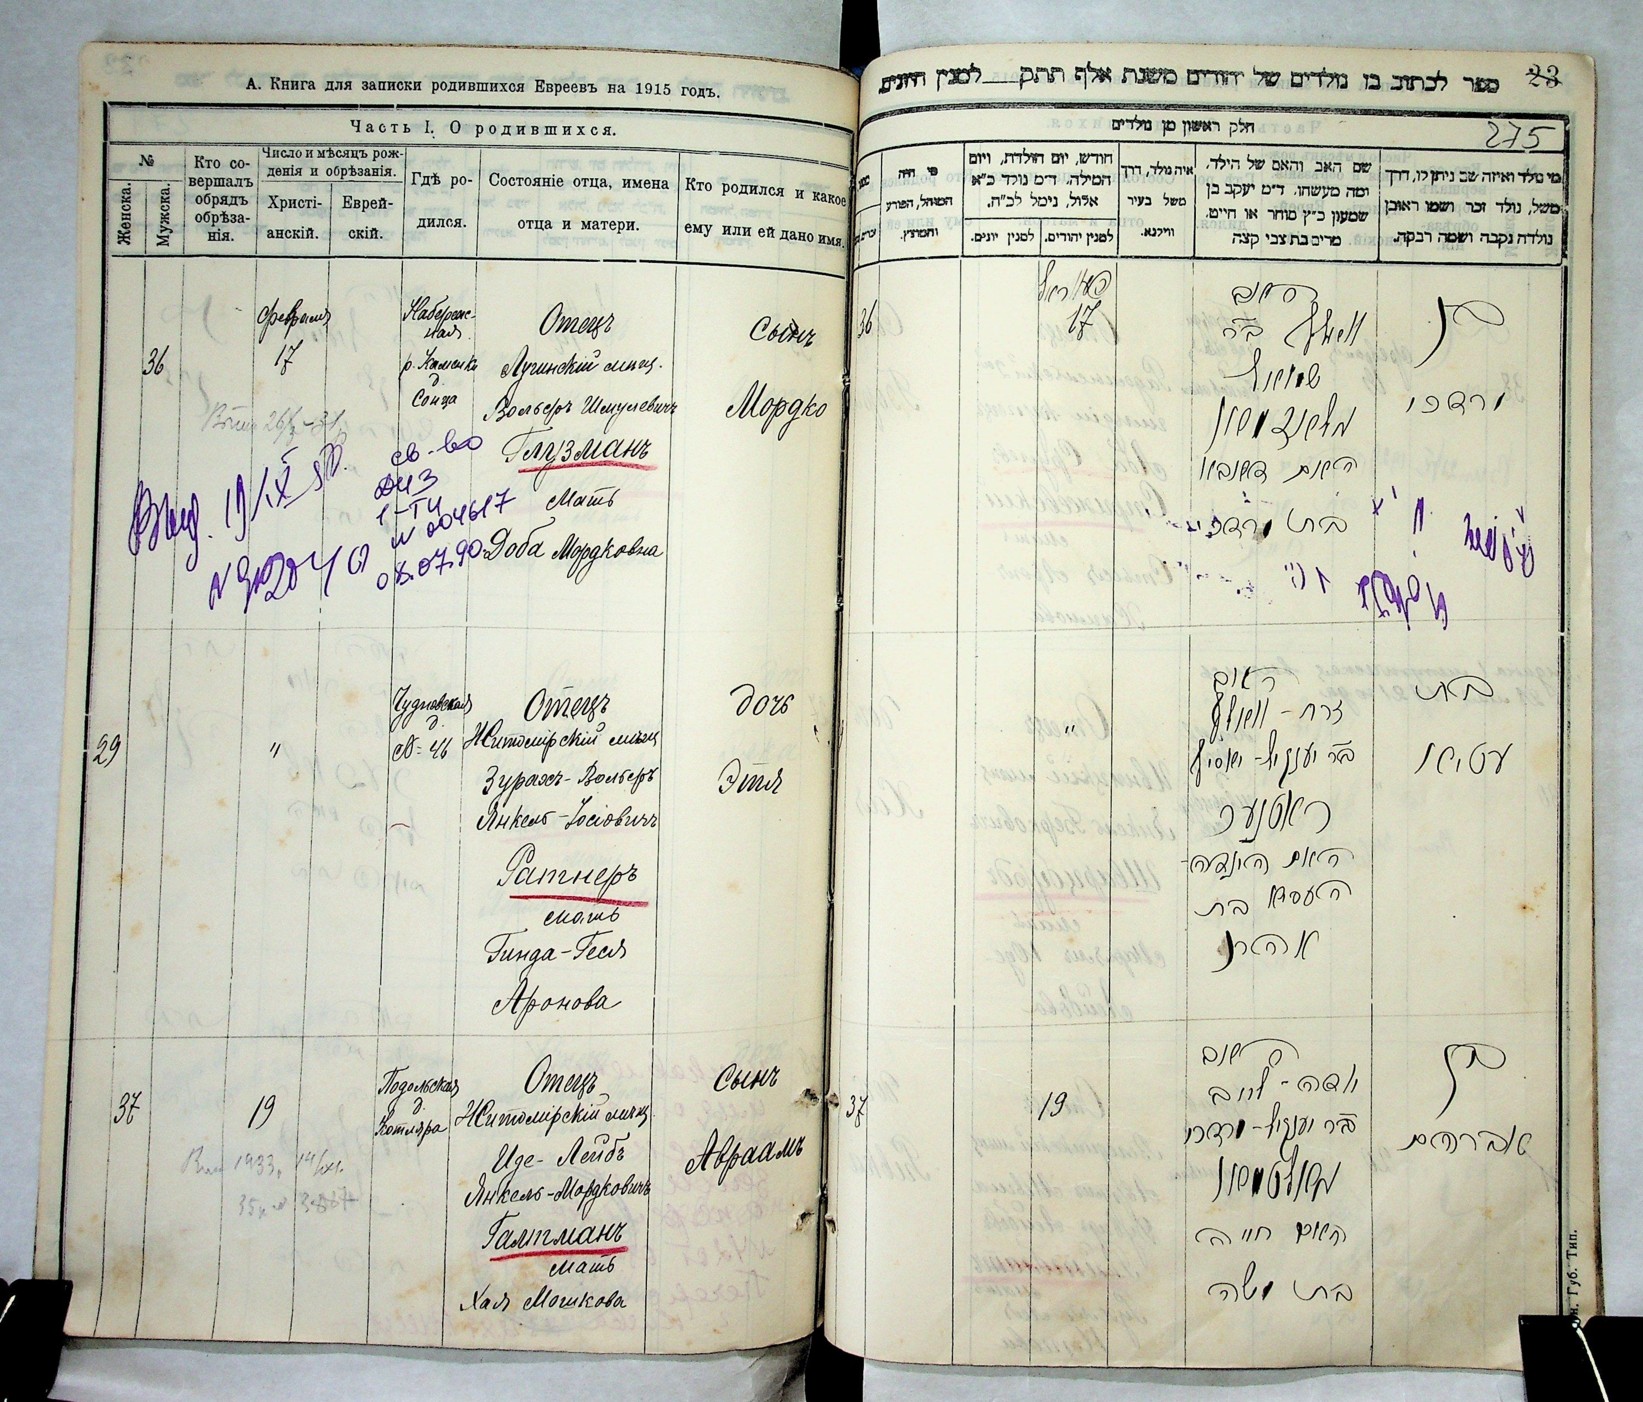 А. Книга для записки родившихся Евреевъ на 1915 годъ.
Часть I. О родившихся.
№
Женска.
Мужска.
Кто со-
вершалъ
обрядъ
обрѣза-
нія.
Число и мѣсяцъ рож-
денія и обрѣзанія.
Христі-
анскій.
Еврей-
скій.
Гдѣ ро-
дился.
Состояніе отца, имена
отца и матери.
Кто родился и какое
ему или ей дано имя.
36
Февраля
17
Набереж-
ная
р. Каменка
д.
Сонца
Отецъ
Лугинскій мѣщ.
Вольфъ Шмулевичъ
Глузманъ
Мать
Доба Мордковна
Сынъ
Мордко
Выд. 19/IX
св-во
1-ТИ
N 204617
06.07.90
29
"
Чудновская
д.
№ 46
Отецъ
Житомірскій мѣщ
Зурахъ-Вольфъ
Янкель-Іосіовичъ
Ратнеръ
мать
Гинда-Геся
Аронова
Дочь
Этля
37
19
Подольская
д.
Котляра
Отецъ
Житомірскій мѣщ.
Иде-Лейбъ
Янкель-Мордковичъ
Галтманъ
мать
Хая Мошкова
Сынъ
Авраамъ
1933
ספר לכתוב בו נולדים של יהודים משנת אלף תתק למנין היונים
23
275
חלק ראשון מן נולדים
מי נולד ואיזה שם ניתן לו, דרך
משל, נולד זכר ושמו ראובן
נולדה נקבה ושמה רבקה.
שם האב והאם של הילד,
ומה מעשהו. ד״מ יעקב בן
שמעון כ״ץ סוחר או חייט,
מרים בת צבי קצה
איה נולד, דרך
משל בעיר
ווילנא.
חודש, יום הולדת, ויום
המילה. ד״מ נולד כ״א
אלול, נימל לכ״ה.
למנין יהודים.
למנין יונים.
מי היה
המוהל, הפורע
והמוצץ.
36
17
בן
מרדכי
האב
וואלף ב״ר
שמואל
גלוזמאן
האם דאבא
בת מרדכי
"
בת
עטיל
האב
זרח-וואלף
ב״ר יענקיל-יאסיף
ראטנער
האם הינדה-
העסיא בת
אהרן
37
19
בן
אברהם
האב
יודה-לייב
ב״ר יענקיל-מרדכי
גאלטמאן
האם חיה
בת משה
Губ. Тип.